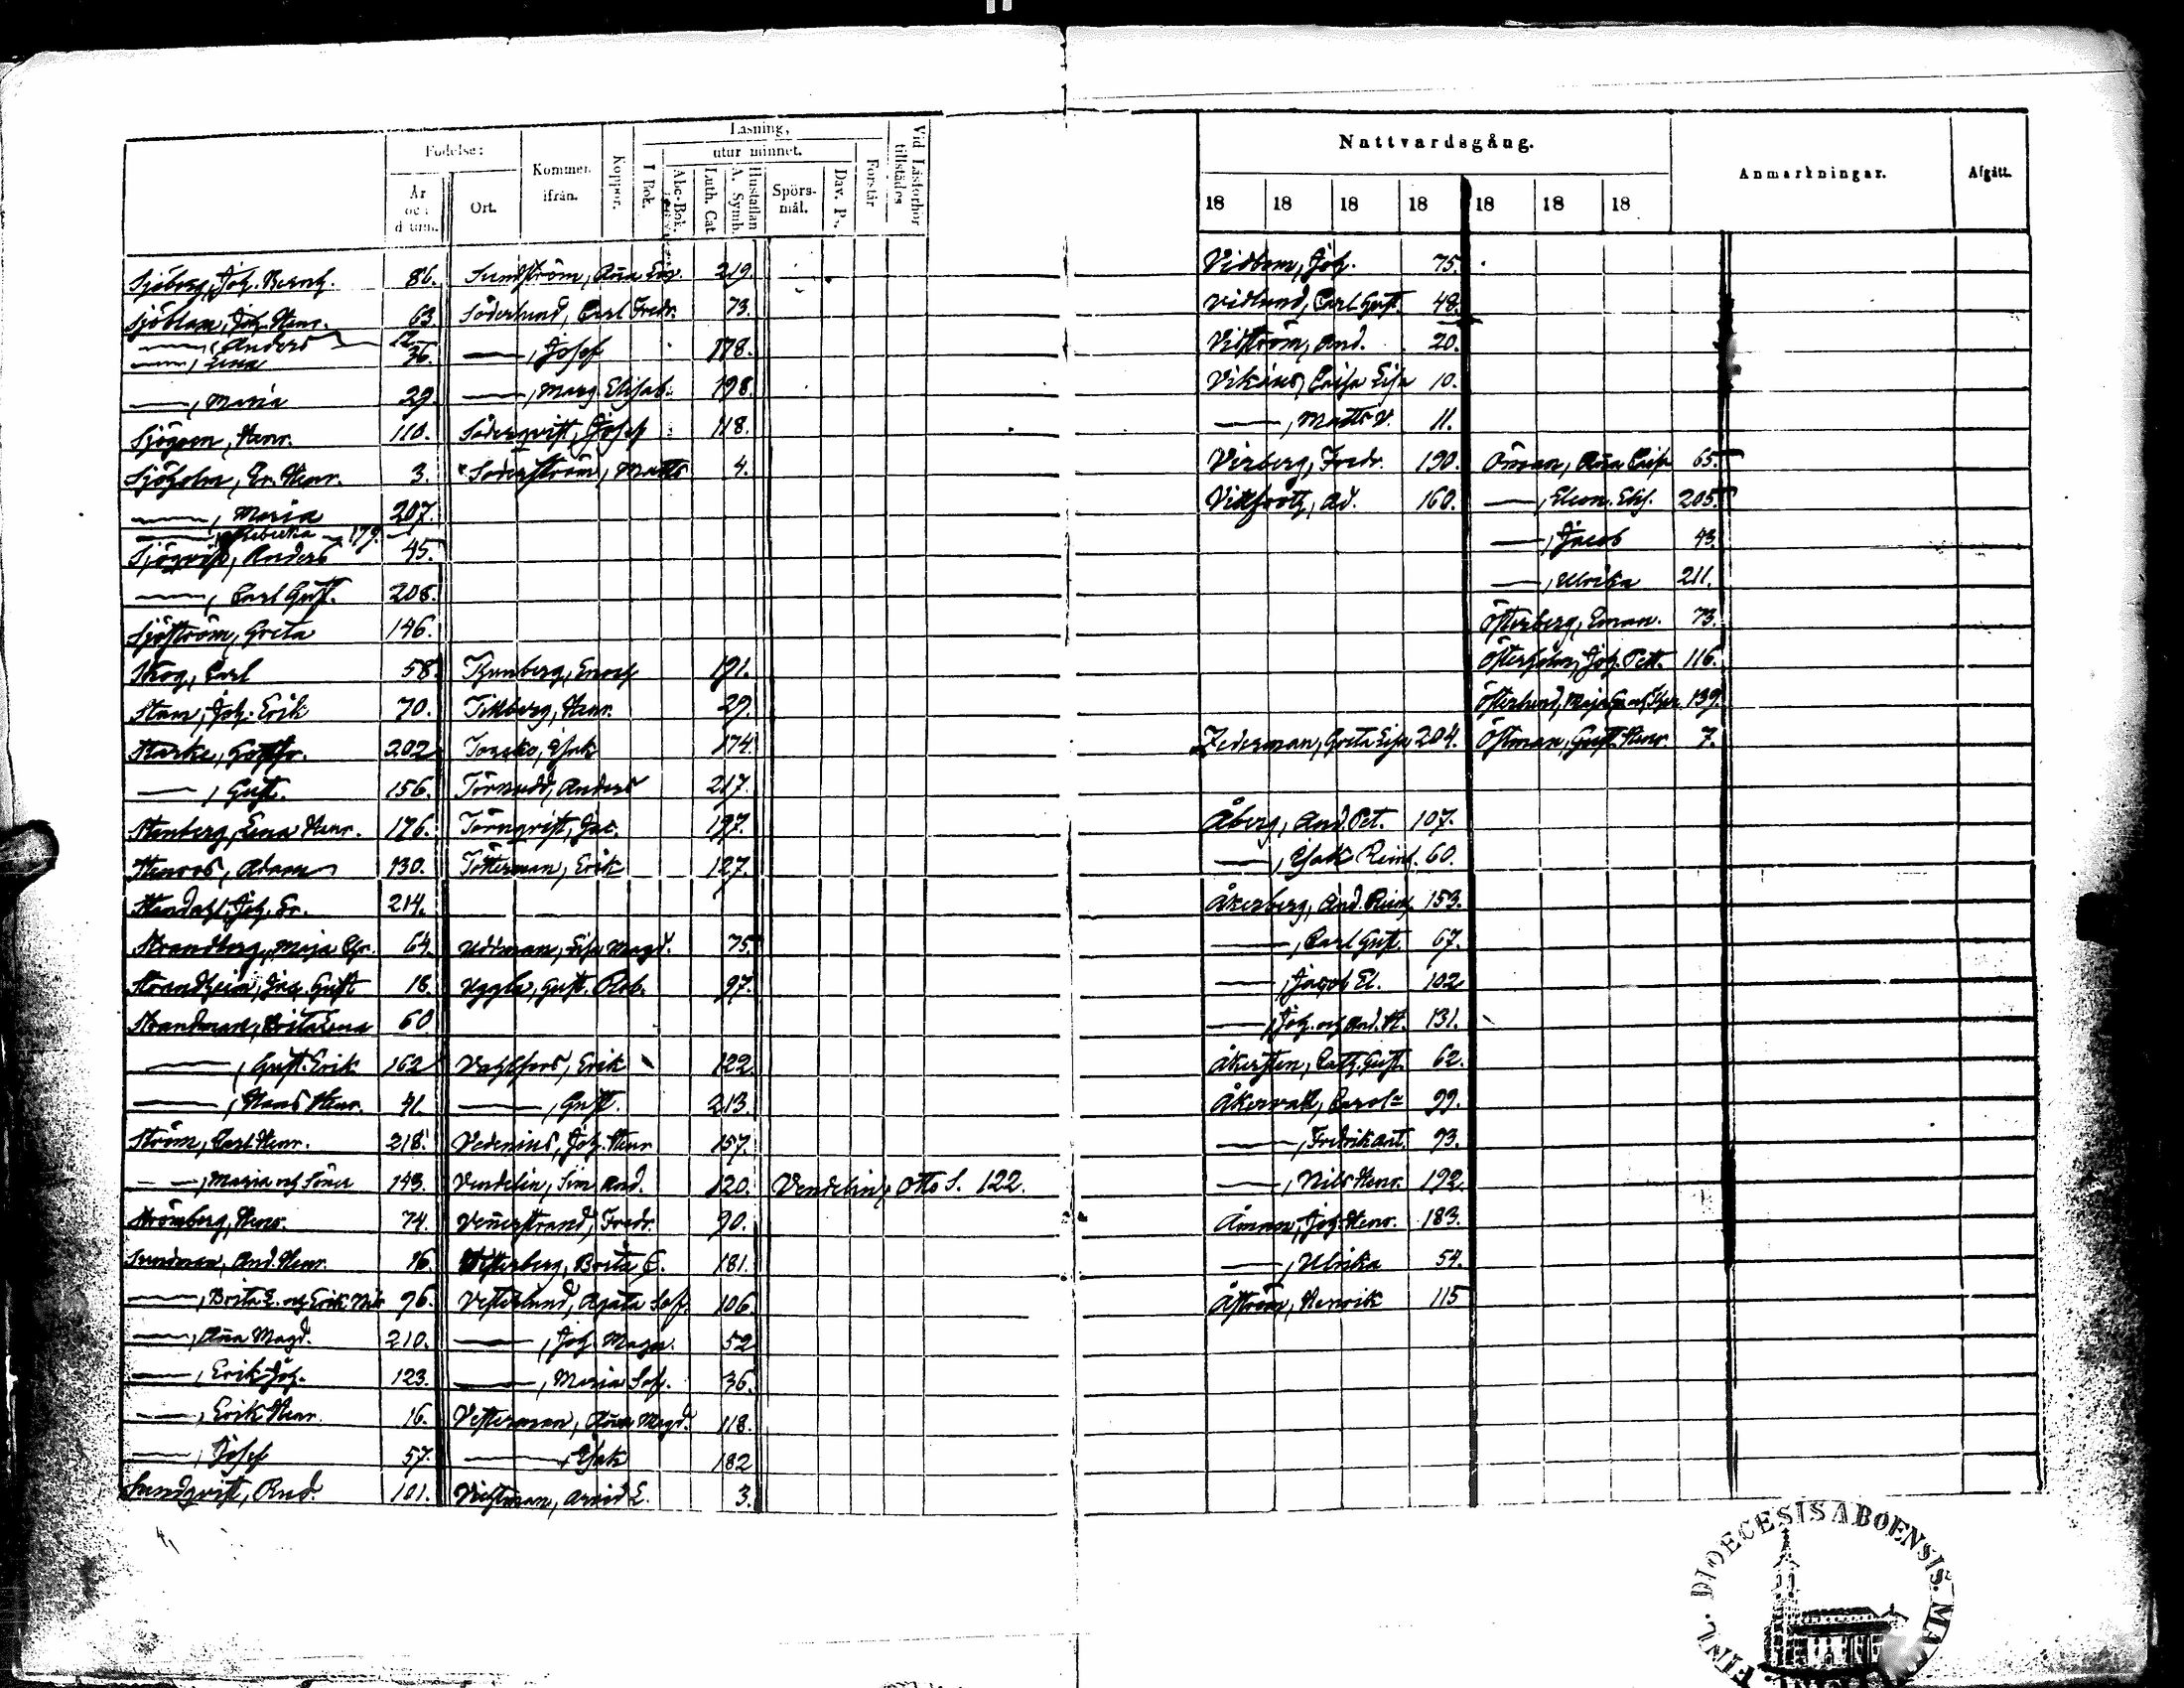 Läsning,
Nattvardsgång.
Födelse:
utur minnet.
Anmärkningar.
Afgått.
Kommer ifrån.
Koppor.
I Bok.
Abc-Bok.
Luth. Cat.
Hustaflan A. Symb.
Spörsmål.
Dav. Ps.
Förstår
Vid Läsförhör tillstädes
År och datum.
Ort.
18 18 18 18 18 18 18
Sjöberg, Joh. Bernh. 86.
Sjöblom, Joh. Henr. 63.
——, Anders 12.
——, Lena 36.
——, Maria 29.
Sjögren, Henr. 110.
Sjöholm, Er. Henr. 3.
——, Maria 207.
——, Rebecka 179.
Sjöqvist, Anders 45.
——, Carl Gust. 208.
Sjöström, Greta 146.
Skog, Carl 58.
Stam, Joh. Erik 70.
Starke, Gottfr. 202
——, Gust. 156.
Stenberg, Lena Henr. 176.
Stenroos, Adam 130.
Stendahl, Joh. Er. 214.
Strandberg, Maja Chr. 64.
Strandheim, Jac. Gust 18.
Strandman, Brita Lena 60
——, Gust. Erik 162
——, Hans Henr. 41.
Ström, Carl Henr. 218.
——, Maria och Söner 143.
Strömberg, Henr. 74.
Sundman, And. Henr. 16.
——, Brita L. och Erik Nils 96.
——, Anna Magd. 210.
——, Erik Joh. 123.
——, Erik Henr. 16.
——, Josef 57.
Sundqvist, And. 101.
Sundström, Anna 219
Söderlund, Carl Fredr. 73.
——, Josef 178.
——, Marg. Elisab. 198.
Söderqvist, Josef 118.
Söderström, Matts 4.
Thunberg, Enoch 191.
Tillberg, Henr. 29.
Torsko, Isak 174.
Törnudd, Anders 217.
Törnqvist, Jac. 197.
Tötterman, Erik 127.
Uddman, Lisa Magd. 75.
Uggla, Gust. Rob. 97.
Vahlfors, Erik 122
——, Gust. 213.
Vedenius, Joh. Henr 157.
Vendelin, Sim. And. 120. Vendelin, Otto S. 122.
Vennerstrand, Fredr. 90.
Vesterberg, Brita C. 181.
Vesterlund, Agata Sof. 106
——, Joh. Magn. 52
——, Maria Sof. 36.
Vesterman, Anna Magd. 118.
——, Isak 182
Vichtman, Arvid E. 3.
Vidbom, Joh. 75.
Vidlund, Carl Gust. 48.
Vidström, And. 20.
Vikéus, Caisa Lisa 10.
——, Matts V. 11.
Virberg, Fredr. 190.
Vittfooth, Ad. 160.
Zederman, Greta Lisa 204.
Åberg, And. Pet. 107.
——, Isak Reinh. 60.
Åkerberg, And. Reinh. 153.
——, Carl Gust. 67.
——, Jacob El. 102
——, Joh. och And. H. 131.
Åkersten, Cath. Gust. 62.
Åkervall, Carola 99.
——, Fredrik Ant. 93.
——, Nils Henr. 192.
Åman, Joh. Henr. 183.
——, Ulrika 54.
Åström, Henrik 115
Öman, Anna Caisa 65.
——, Eleon. Elis. 205.
——, Jacob 43
——, Ulrika 211.
Österberg, Eman. 73.
Österholm, Joh. Pett. 116.
Österlund, Maja 139.
Östman, Gust. Henr. 7.
FINL. DIOECESIS ABOENSIS.